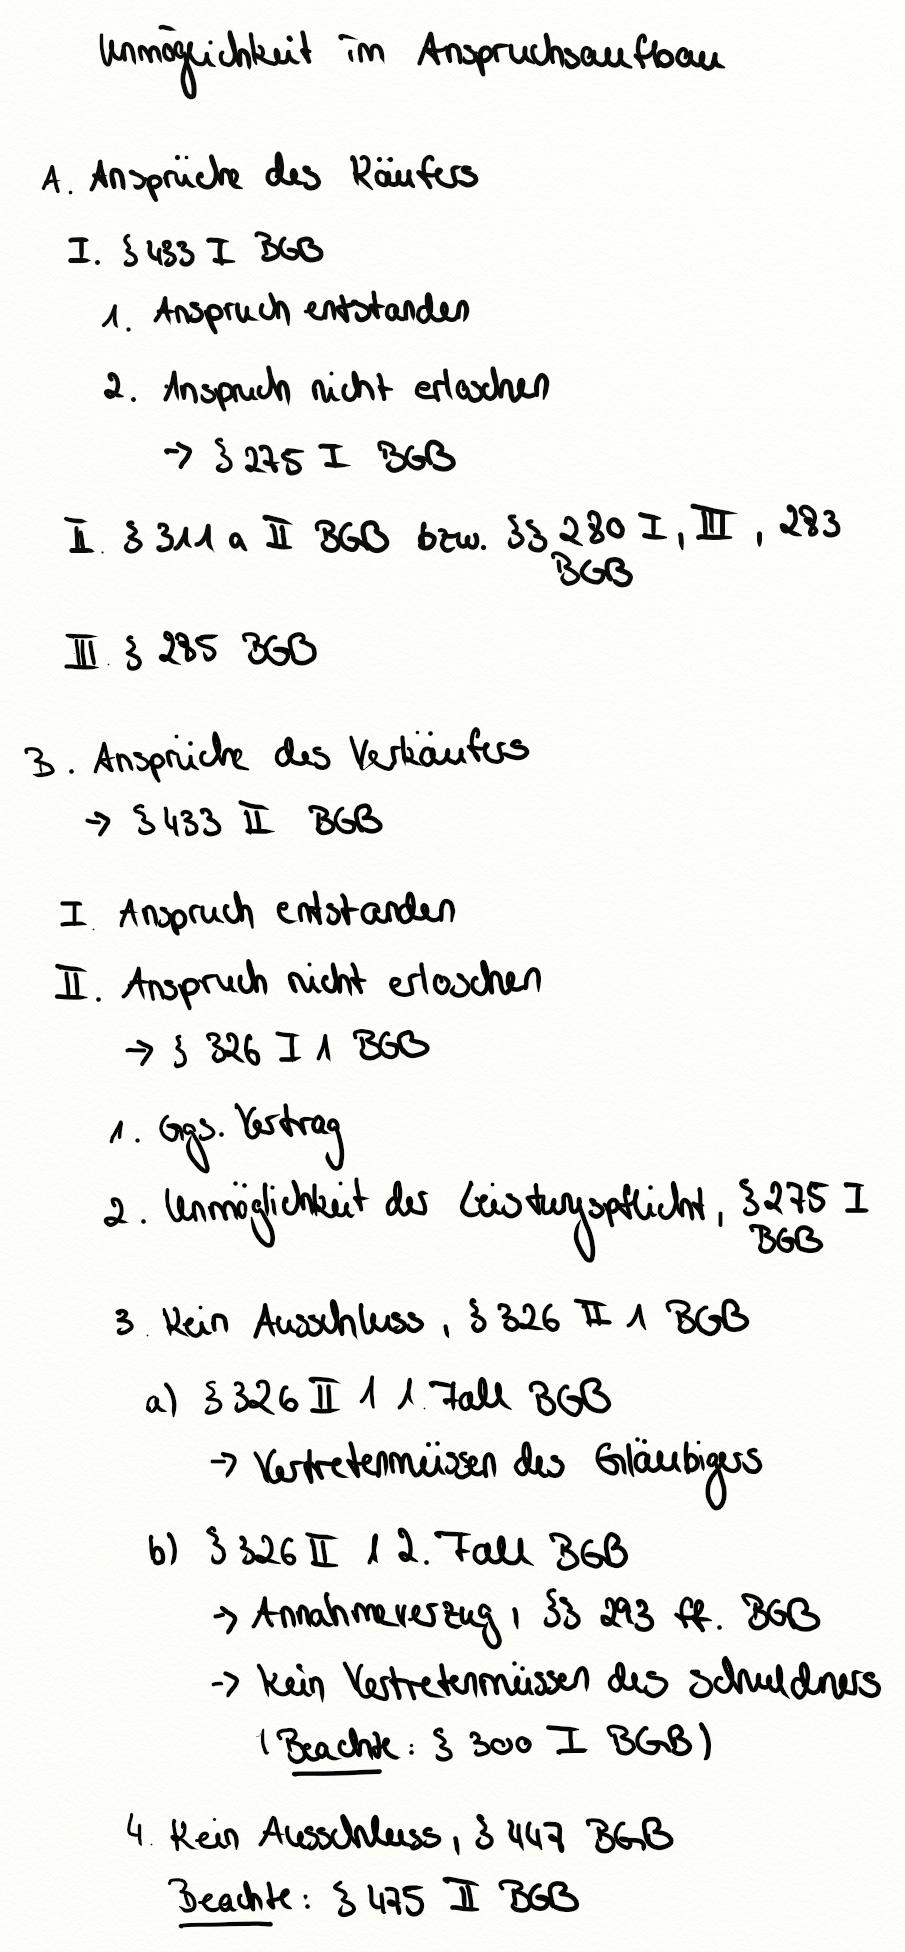 Unmöglichkeit im Anspruchsaufbau
A. Ansprüche des Käufers
I. § 433 I BGB
1. Anspruch entstanden
2. Anspruch nicht erloschen
→ § 275 I BGB
II. § 311 a II BGB bzw. §§ 280 I, III, 283
BGB
III. § 285 BGB
B. Ansprüche des Verkäufers
→ § 433 II BGB
I. Anspruch entstanden
II. Anspruch nicht erloschen
→ § 326 I 1 BGB
1. Ggs. Vertrag
2. Unmöglichkeit der Leistungspflicht, § 275 I
BGB
3. Kein Ausschluss, § 326 II 1 BGB
a) § 326 II 1 1. Fall BGB
→ Vertretenmüssen des Gläubigers
b) § 326 II 1 2. Fall BGB
→ Annahmeverzug, §§ 293 ff. BGB
→ Kein Vertretenmüssen des Schuldners
(Beachte: § 300 I BGB)
4. Kein Ausschluss, § 447 BGB
Beachte: § 475 II BGB